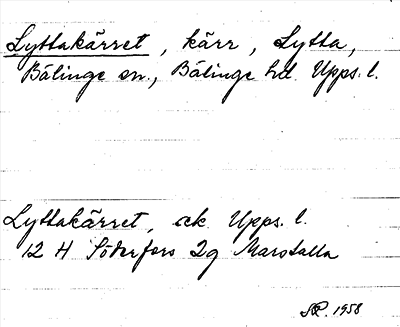 Lyttakärret, kärr, Lytta,
Bälinge sn., Bälinge hd. Upps. l.
Lyttakärret, ek Upps. l.
12 H Söderfors 2g Marstalla
1958